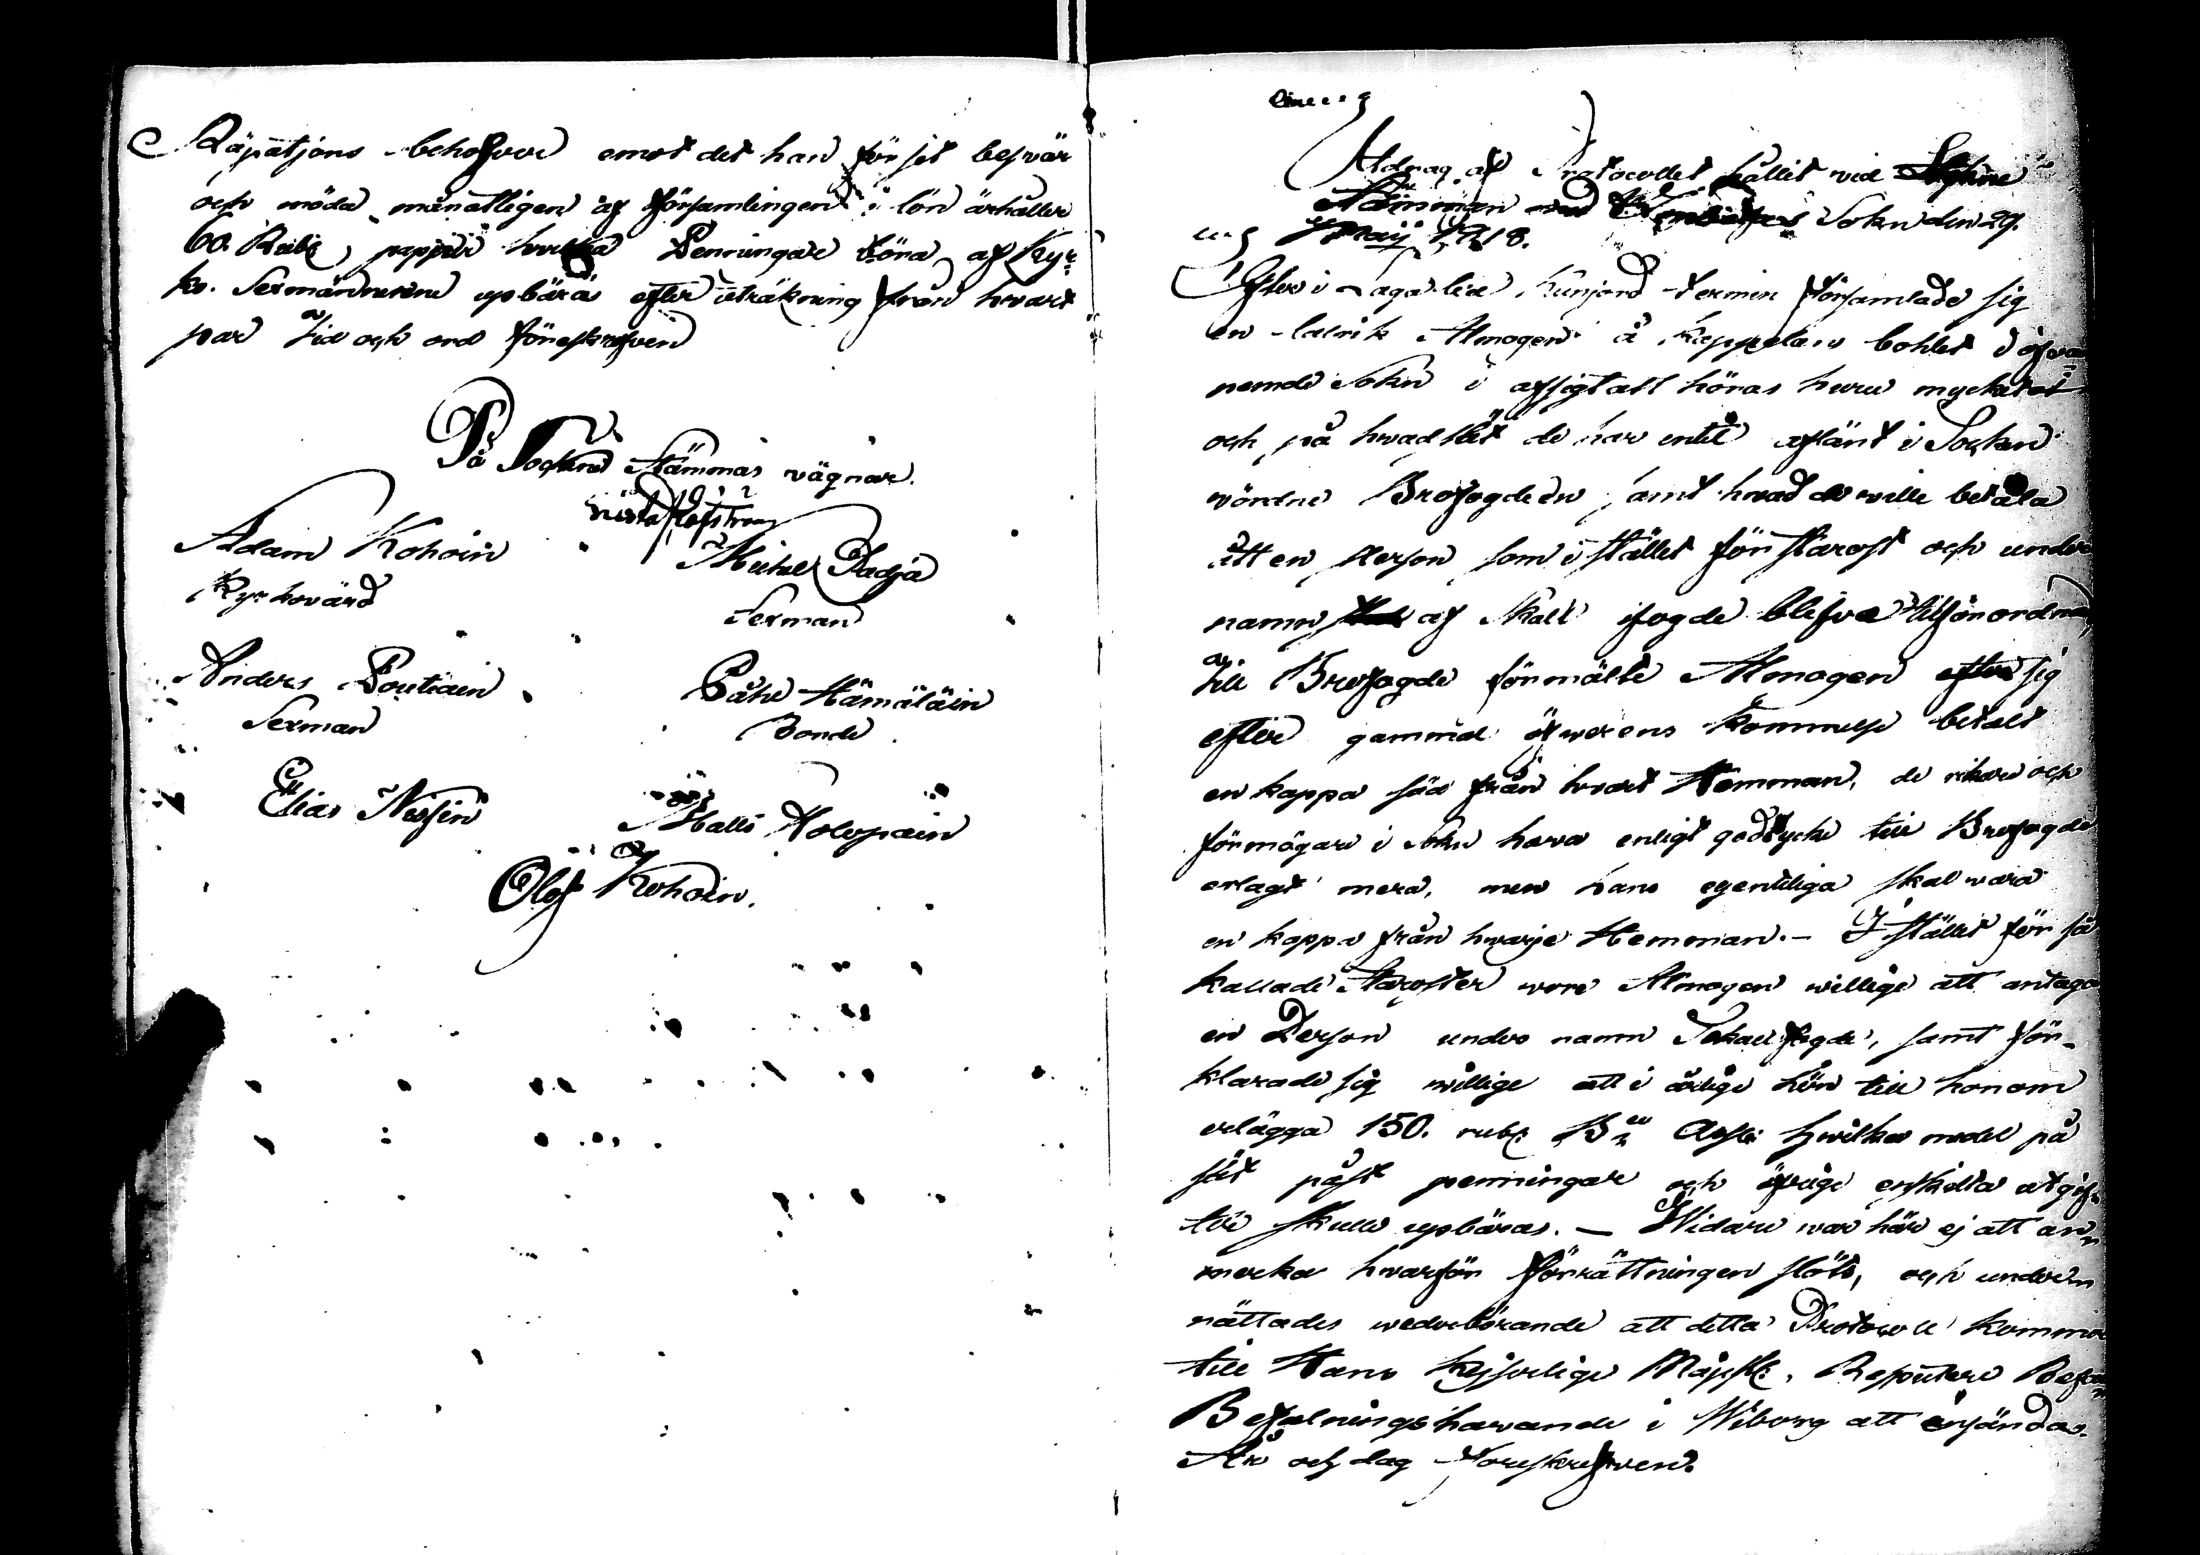 Räpatjons behofwer emot det han för sit beswär
och möda månatligen af församlingen i lön ärhåller
60. Rubl papper hvilka Penningar böra af Kyr-
ko. Sexmännerne upbäras efter uträkning från hvart
par Tid och ord föreskrefven
På Sockne Stämmas vägnar.
Adam Kohoin Michel Radja
Kyrkovärd Sexman
Anders Poutiain Påhl Hämäläin
Sexman Bonde
Elias Nissin Matts Holopain
Olof Kohoin.
Utdrag af Protocollet hållit vid
Sokn den 29.
Maij 1818.
Efter i laga tid kunjord termin församlade sig
en talrik Almogen å Kappelans bohlet i ofvan
nemde Sokn i afsigt att höras huru mycket
och på hvad sätt de har intil aflänt i Socken
wördne Brofogden, samt hvad de wille betala
åt en Person som i stället för Starost och under
namn af Skall fogde blifva tilförordnad,
till Brofogde förmälte Almogen sig
efter gammal öfwerens kommelse betalt
en kappa säd från hvart Hemman, de rikare och
förmögare i Sokn hava enligt godtycke till Brofogde
erlagt mera, men hans egentliga skal wara
en kappa från hwarje Hemman. – I stället för så
kallade Staroster wore Almogen willige att antaga
en Person under namn Skallfogde, samt för-
klarade sig willige att i årlige Lön till honom
erlägga 150. rubl B: Assig: hwilka medel på
sät påst penningar och öfrige enskilta utgif-
ter skulle upbäras. – Widare war här ej att an-
merka hvarför Förrättningen slöts, och under-
rättades wederbörande att detta Protocoll kommer
till Hans Kejserlige Majestts. Befalningshavande i Wiborg att insändas.
År och dag Föreskrefwen.